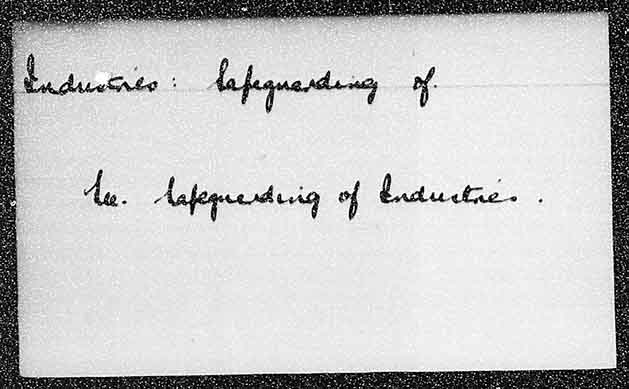 Industries: Safeguarding of.
See. Safeguarding of Industries.